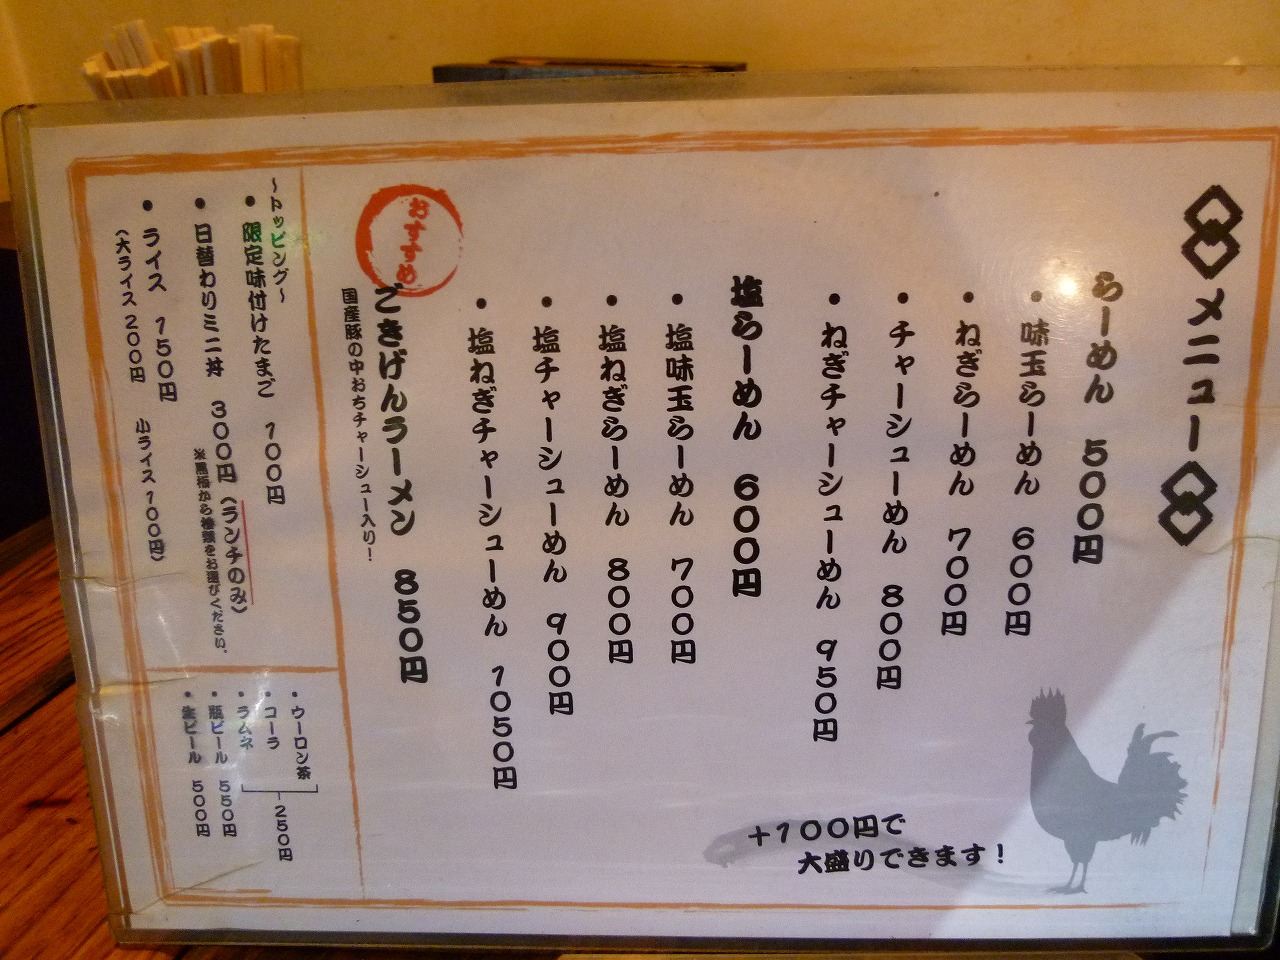 メニュー
らーめん 500円
・味玉らーめん 600円
・ねぎらーめん 700円
・チャーシューめん 800円
・ねぎチャーシューめん 950円
塩らーめん 600円
・塩味玉らーめん 700円
・塩ねぎらーめん 800円
・塩チャーシューめん 900円
・塩ねぎチャーシューめん 1050円
おすすめ
ごきげんラーメン 850円
国産豚の中おちチャーシュー入り!
+100円で
大盛りできます!
~トッピング~
・限定味付けたまご 100円
・日替わりミニ丼 300円(ランチのみ)
※黒板から種類をお選びください。
・ライス 150円
(大ライス200円 小ライス100円)
・ウーロン茶
・コーラ
・ラムネ
250円
・瓶ビール 550円
・生ビール 500円